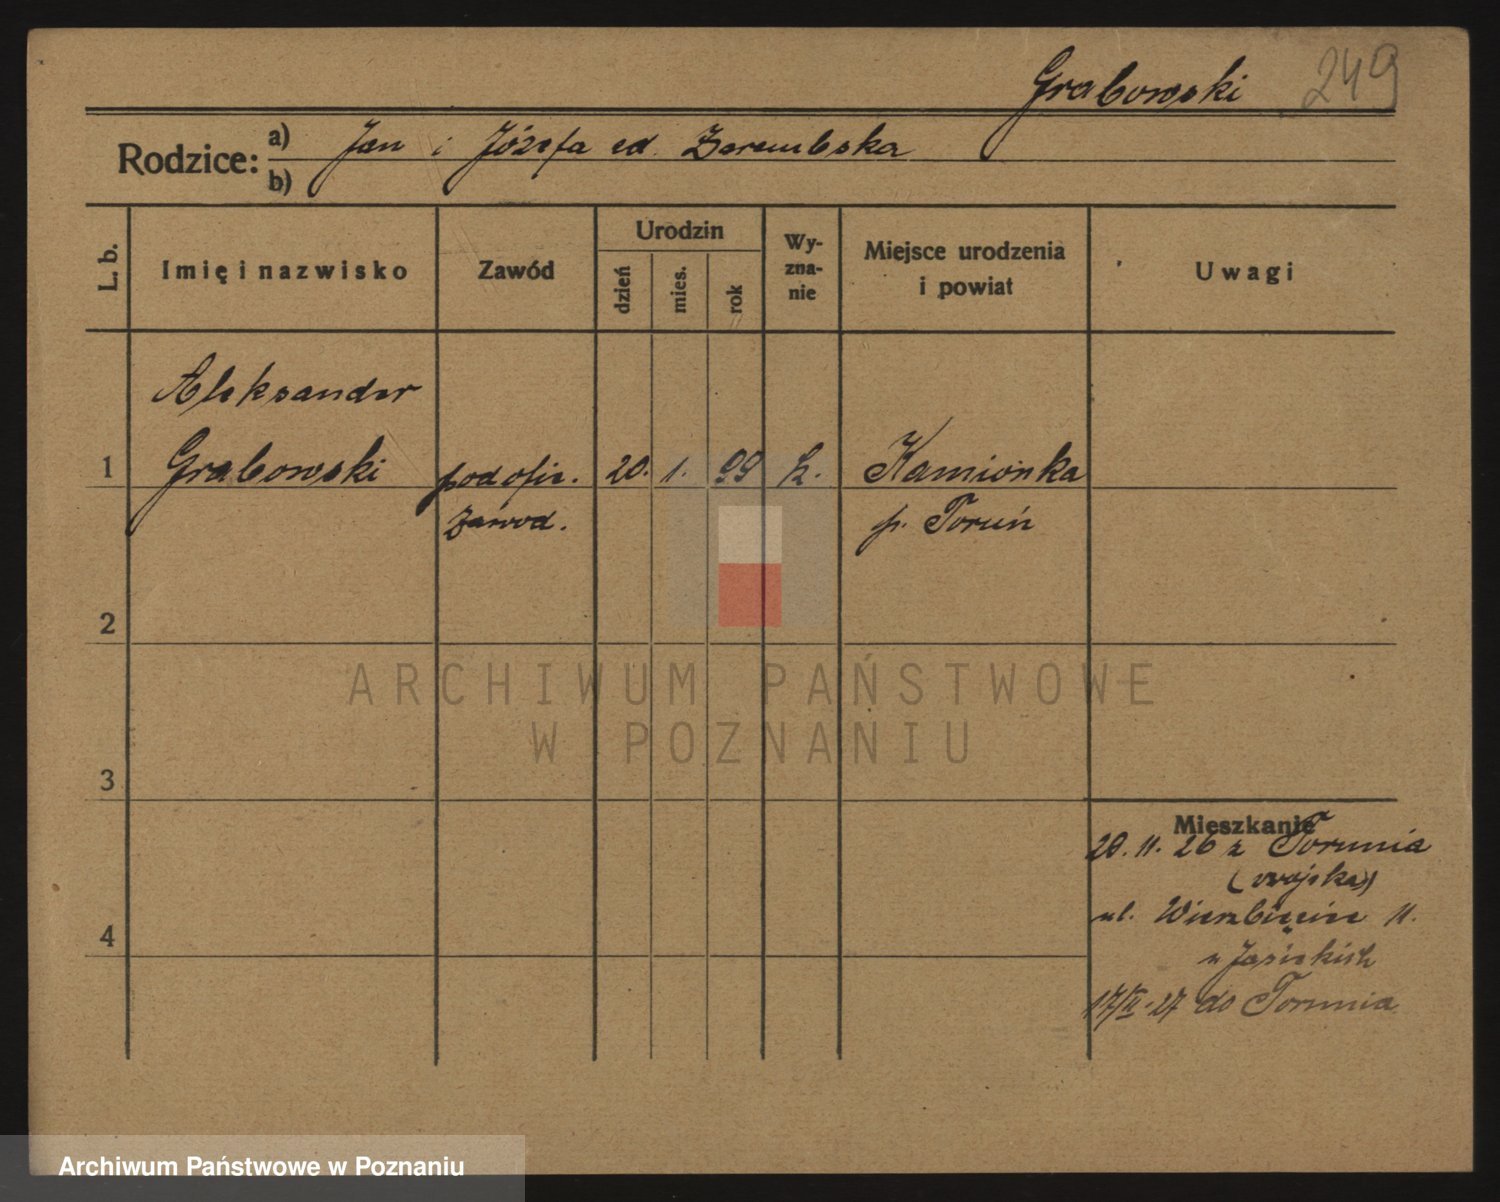 Grabowski 249
Rodzice: a) Jan i Józefa zd. Zarembska
b)
L. b. Imię i nazwisko Zawód Urodzin dzień mies. rok Wyznanie Miejsce urodzenia i powiat Uwagi
Aleksander
1 Grabowski podofic. 20. 1. 99 k. Kamionka
zawod. p. Toruń
2
ARCHIWUM PAŃSTWOWE
W POZNANIU
3
Mieszkanie
20. 11. 26 z Torunia
(wojska)
ul. Wierzbięcice 11.
u Jasickich
17/ -27 do Torunia
4
Archiwum Państwowe w Poznaniu